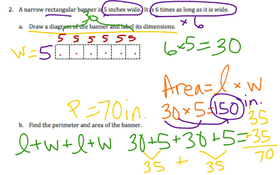 2. A narrow rectangular banner is 5 inches wide. It is 6 times as long as it is wide.
30
× 6
a. Draw a diagram of the banner and label its dimensions.
5 5 5 5 5 5
W=5
6×5=30
Area = l × w
P=70in.
30 × 5 = 150 in.
b. Find the perimeter and area of the banner.
l+w+l+w
30+5+30+5=
35 + 35
35
+35
70